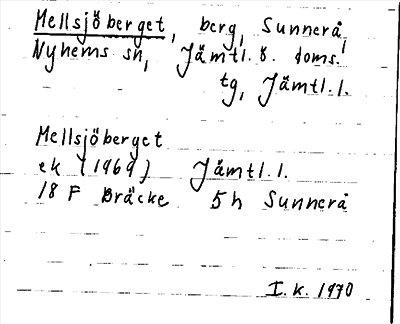 Mellsjöberget, berg, Sunnerå,
Nyhems sn, Jämtl. ö. doms.
tg, Jämtl. l.
Mellsjöberget
ek (1969) Jämtl. l.
18 F Bräcke 5h Sunnerå
I. K. 1970